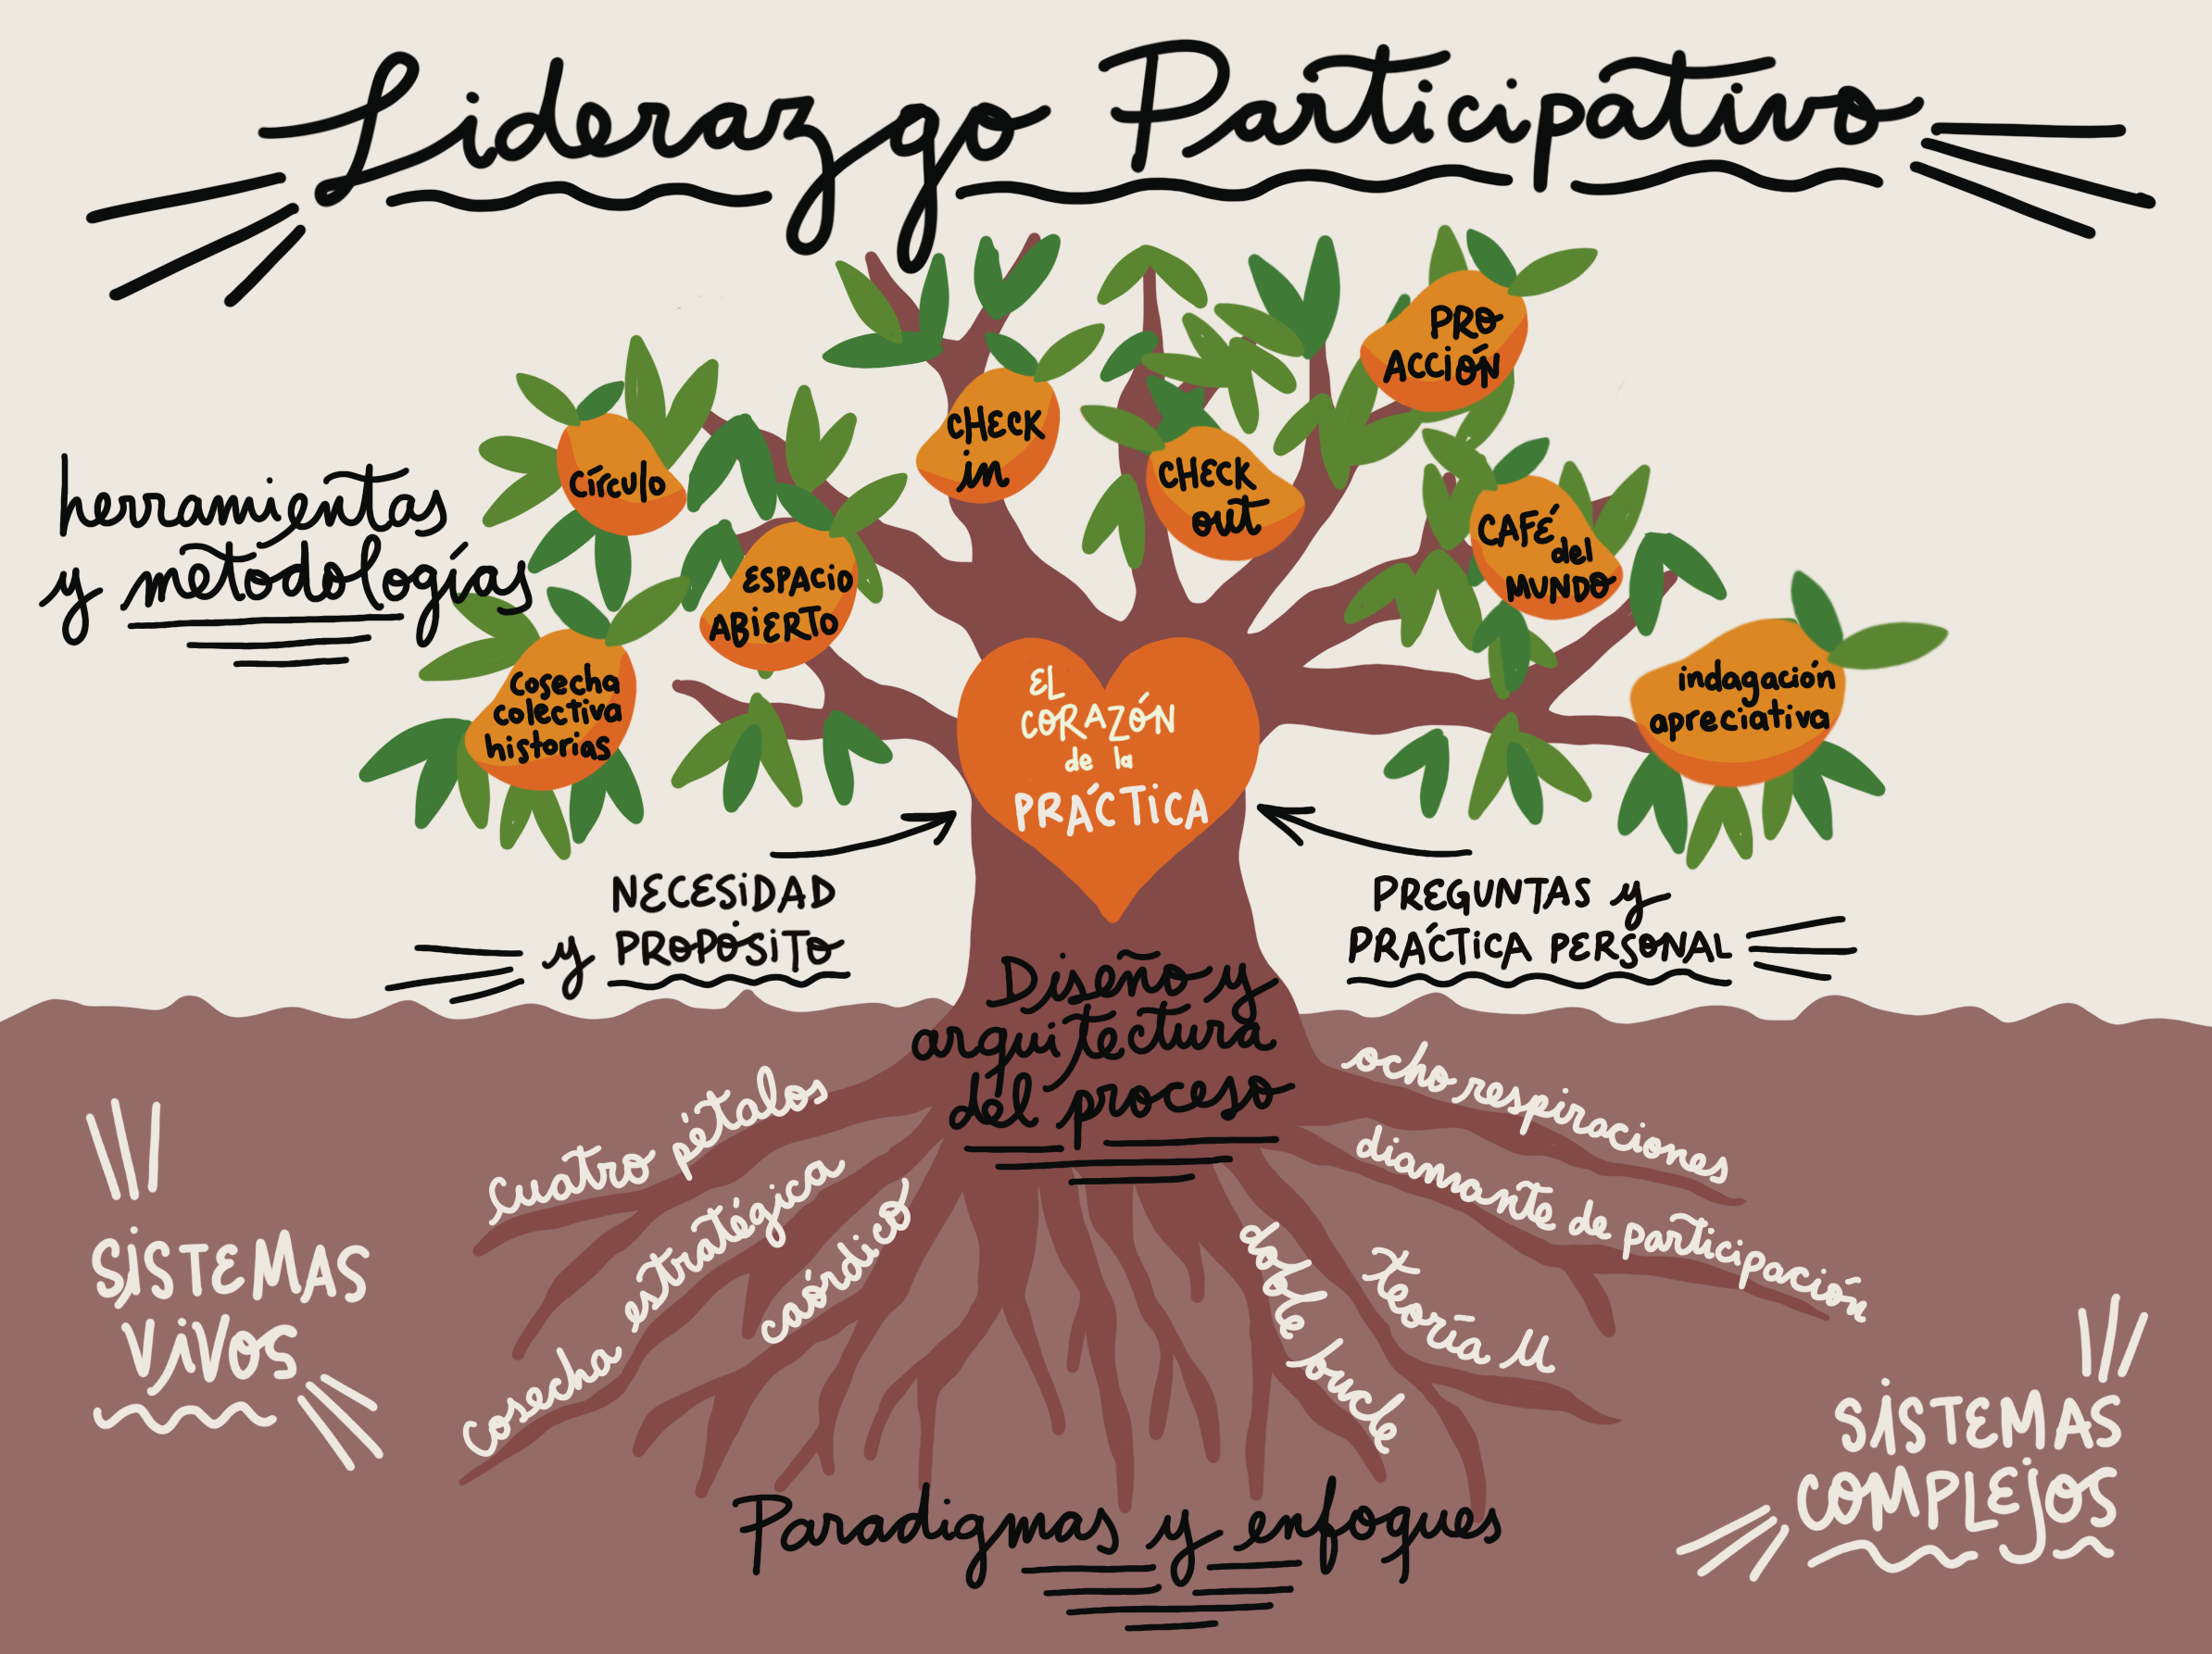 Liderazgo Participativo
herramientas
y metodologías
Círculo
CHECK
in
CHECK
out
PRO
ACCIÓN
ESPACIO
ABIERTO
CAFÉ
del
MUNDO
Cosecha
colectiva
historias
indagación
apreciativa
EL
CORAZÓN
de la
PRÁCTICA
NECESIDAD
y PROPÓSITO
PREGUNTAS y
PRÁCTICA PERSONAL
Diseño y
arquitectura
del proceso
Cuatro pétalos
Cosecha estratégica
caórdico
ocho respiraciones
diamante de participación
teoría U
doble bucle
SISTEMAS
VIVOS
SISTEMAS
COMPLEJOS
Paradigmas y enfoques